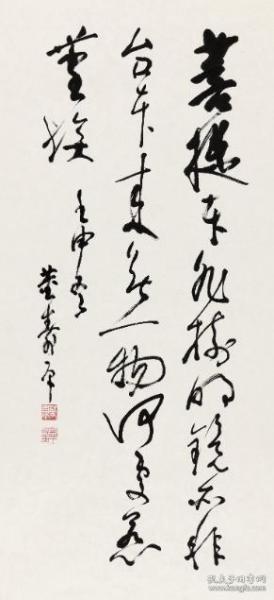 菩提本非樹明鏡亦非
台本来無一物何處惹
塵埃 壬申
董壽平
孔夫子旧书网